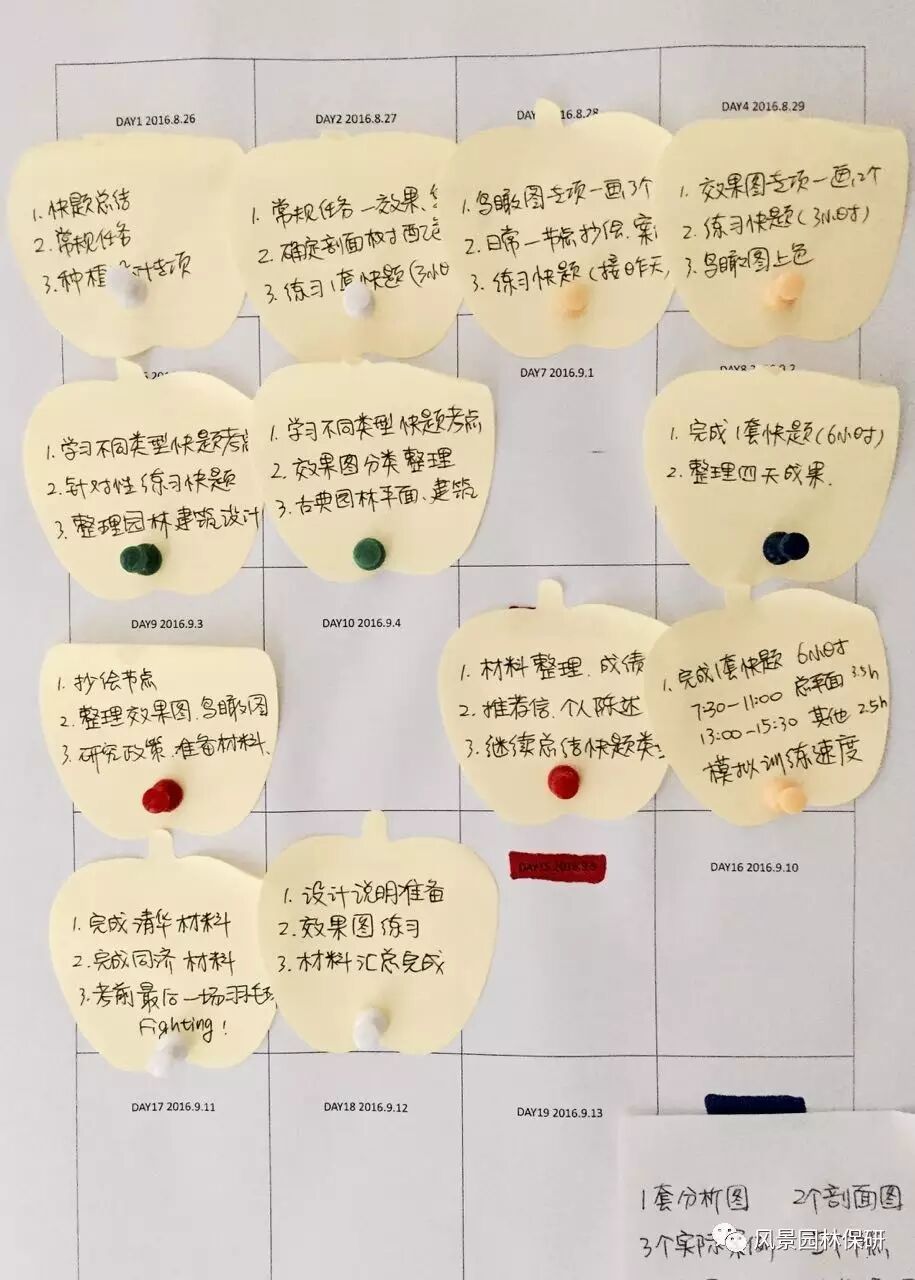 DAY1 2016.8.26
1.快题总结
2.常规任务
3.种植 专项
DAY2 2016.8.27
1.常规任务一效果、
2.确定剖面权寸西
3.练习1套快题(3小
.8.28
1.鸟瞰图专项一画,3个
2.日常一节点抄绘.案
3.练习快题(接昨天,
DAY4 2016.8.29
1.效果图专项一画,2个
2.练习快题(3小时)
3.鸟瞰图上色
1.学习不同类型快题考点
2.针对性练习快题
3.整理园林建筑设计
1.学习不同类型快题考点
2.效果图分类整理
3.古典园林平面、建筑
DAY7 2016.9.1
DAY8
1.完成1套快题(6小时)
2.整理四天成果.
DAY9 2016.9.3
1.抄绘节点
2.整理效果图.鸟瞰图
3.研究政策.准备材料.
DAY10 2016.9.4
1.材料整理.成绩
2.推荐信.个人陈述
3.继续总结快题类
1.完成1套快题 6小时
7:30-11:00 总平面 3.5h
13:00-15:30 其他 2.5h
模拟训练速度
1.完成清华材料
2.完成同济材料
3.考前最后一场羽毛
Fighting!
1.设计说明准备
2.效果图练习
3.材料汇总完成
DAY15 2016.9.9
DAY16 2016.9.10
DAY17 2016.9.11
DAY18 2016.9.12
DAY19 2016.9.13
1套分析图 2个剖面图
3个实际案例
风景园林保研